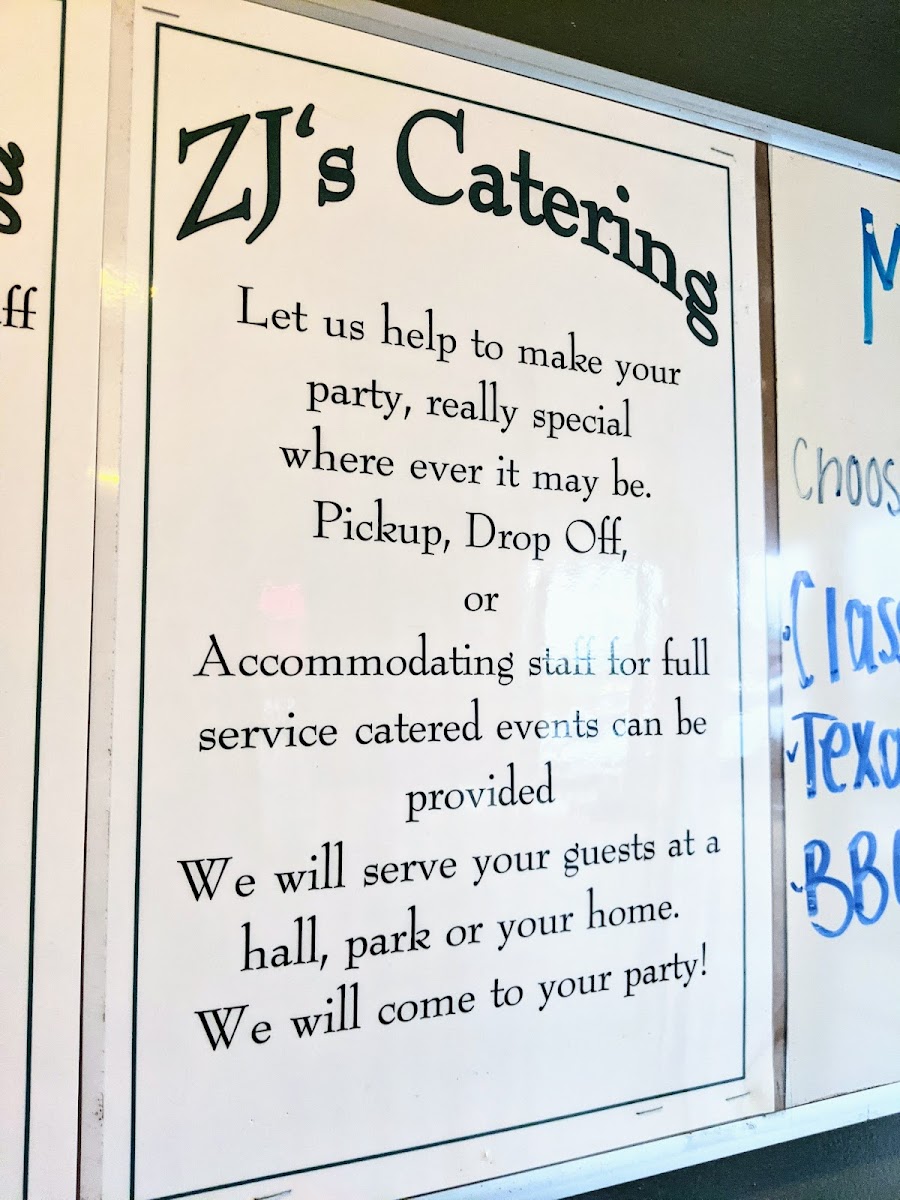 ZJ's Catering
Let us help to make your
party, really special
where ever it may be.
Pickup, Drop Off,
or
Accommodating staff for full
service catered events can be
provided
We will serve your guests at a
hall, park or your home.
We will come to your party!